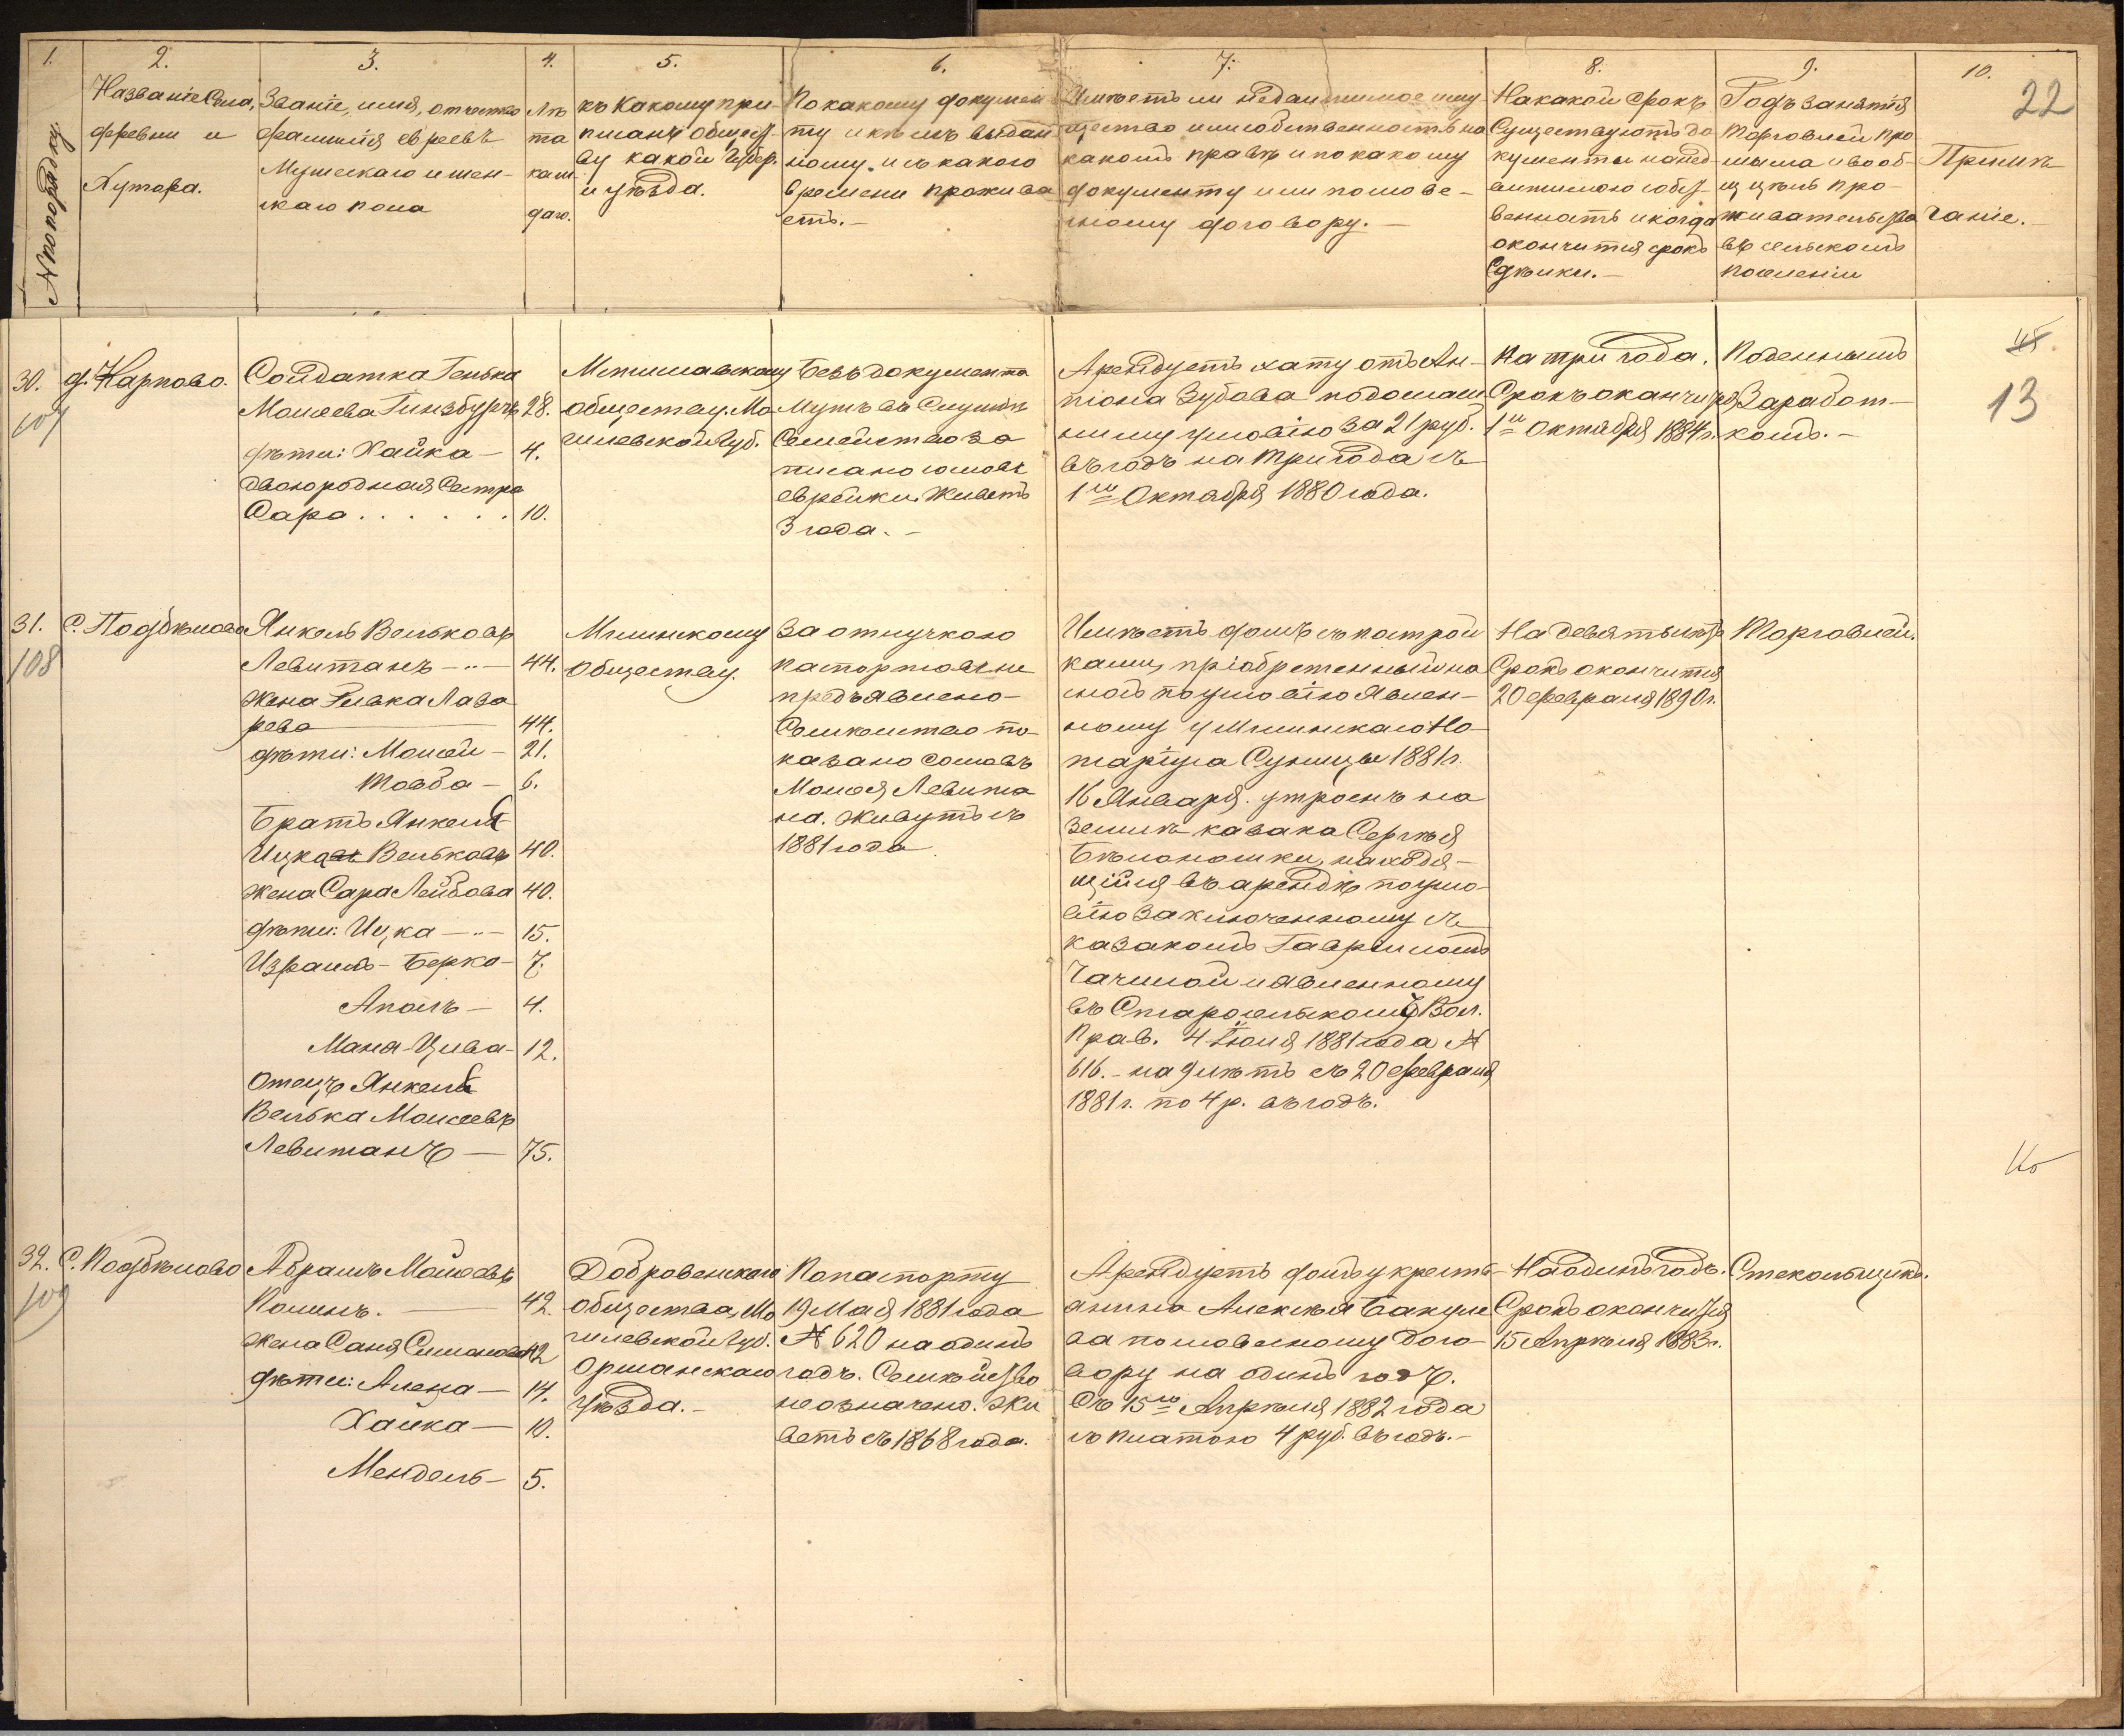 1.
2.
3.
4.
5.
6.
7.
8.
9.
10.
22
№ по порядку.
Названіе Села,
деревни и
Хутора.
Званіе, имя, отчество
фамилія евреевъ
Мужескаго и жен-
скаго пола
Лѣ
та
каж
даго.
къ Какому при-
писанъ общест-
ву какой губер.
и уѣзда.
По какому докумен
ту и кѣмъ выдан
ному и съ какого
времени прожива
етъ.-
Имѣетъ ли недвижимое иму
щество или собственность на
какомъ правѣ и по какому
документу или послове-
сному договору.-
На какой срокъ
Существуютъ до
кументы на нед-
вижимою собст-
венность и когда
окончится срокъ
Сдѣлки.-
Родъ занятія
торговлей про
мысла и вооб-
ще цѣль про-
живательства
въ сельскомъ
поселеніи
Примѣ
чаніе.-
30.
107
д. Карпово.
Солдатка Генька
Мовшева Гинзбургъ 28.
дѣти: Хайка - 4.
двоюродная Сестра
Сара . . . . . . 10.
Мстиславскому
обществу Мо
гилевской Губ.
Безъ документа
Мужъ въ Службѣ
Семейство за
писано со словъ
еврейки. Живетъ
3 года.-
Арендуетъ хату отъ Ан-
тона Зубова по домаш
нему условію за 21 руб.
въ годъ на три года съ
1го Октября 1880 года.
На три года.
Срокъ окончится
1го Октября 1884 г.
Поденнымъ
Заработ-
комъ.-
13
31.
108
С. Поддѣлово
Янкель Вельковъ
Левитанъ -..- 44.
жена Ривка Лаза
рева 44.
дѣти: Мовша - 21.
Товба - 6.
Братъ Янкеля
Ицка Вельковъ 40.
жена Сара Лейбова 40.
дѣти: Ицка -..- 15.
Израиль-Берка - 7.
Аполъ - 4.
Маня-Цива - 12.
Отецъ Янкеля
Велька Мовшевъ
Левитанъ - 75.
Мглинскому
обществу.
За отлучкою
паспортовъ не
предъявлено-
Семейство по-
казано со словъ
Мовши Левита
на. Живутъ съ
1881 года
Имѣетъ домъ съ построй
ками, пріобретенный на
сносъ по условію Явлен-
ному у Мглинскаго Но-
таріуса Сулицы 1881 г.
16 Января. устроенъ на
землѣ казака Сергѣя
Бѣлоножки, находя-
щійся въ арендѣ по усло-
вію заключенному съ
казакомъ Гавриломъ
Чачилой и явленному
въ Старосельскомъ Вол.
Прав. 4 Іюля 1881 года №
616.- на 9 лѣтъ съ 20 февраля
1881 г. по 4 р. въ годъ.
На девять лѣтъ
Срокъ окончится
20 февраля 1890 г.
Торговлей.
32.
109
С. Поддѣлово
Абрамъ Мовшевъ
Полинъ. 42.
жена Саня Симонова 42
дѣти: Алеца - 14.
Хайка - 10.
Мендель - 5.
Добровенскаго
общества, Мо
гилевской Губ.
Оршанскаго
уѣзда.-
По паспорту
19 Мая 1881 года
№ 620 на одинъ
годъ. Семейство
не означено. Жи
ветъ съ 1868 года.
Арендуетъ домъ у кресть-
янина Алексѣя Бакуле
ва по словесному дого-
вору на одинъ годъ.
Съ 15го Апрѣля 1882 года
съ платою 4 руб. въ годъ.-
На одинъ годъ.
Срокъ окончится
15 Апрѣля 1883 г.
Стекольщикъ.